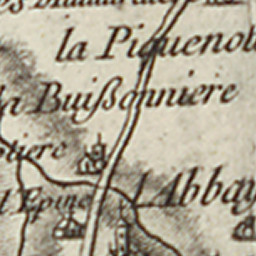 la Piquenot
la Buißonniere
otiere
l'Epine
l'Abbay